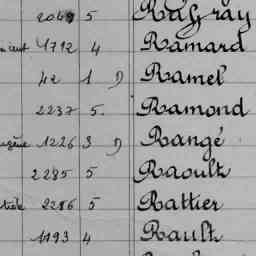 5 Raffray
icent 1712 4 Ramard
42 1 D Ramel
2237 5. Ramond
ugène 1226 3 D Rangé
2285 5 Raoult
2286 5 Rattier
1193 4 Rault